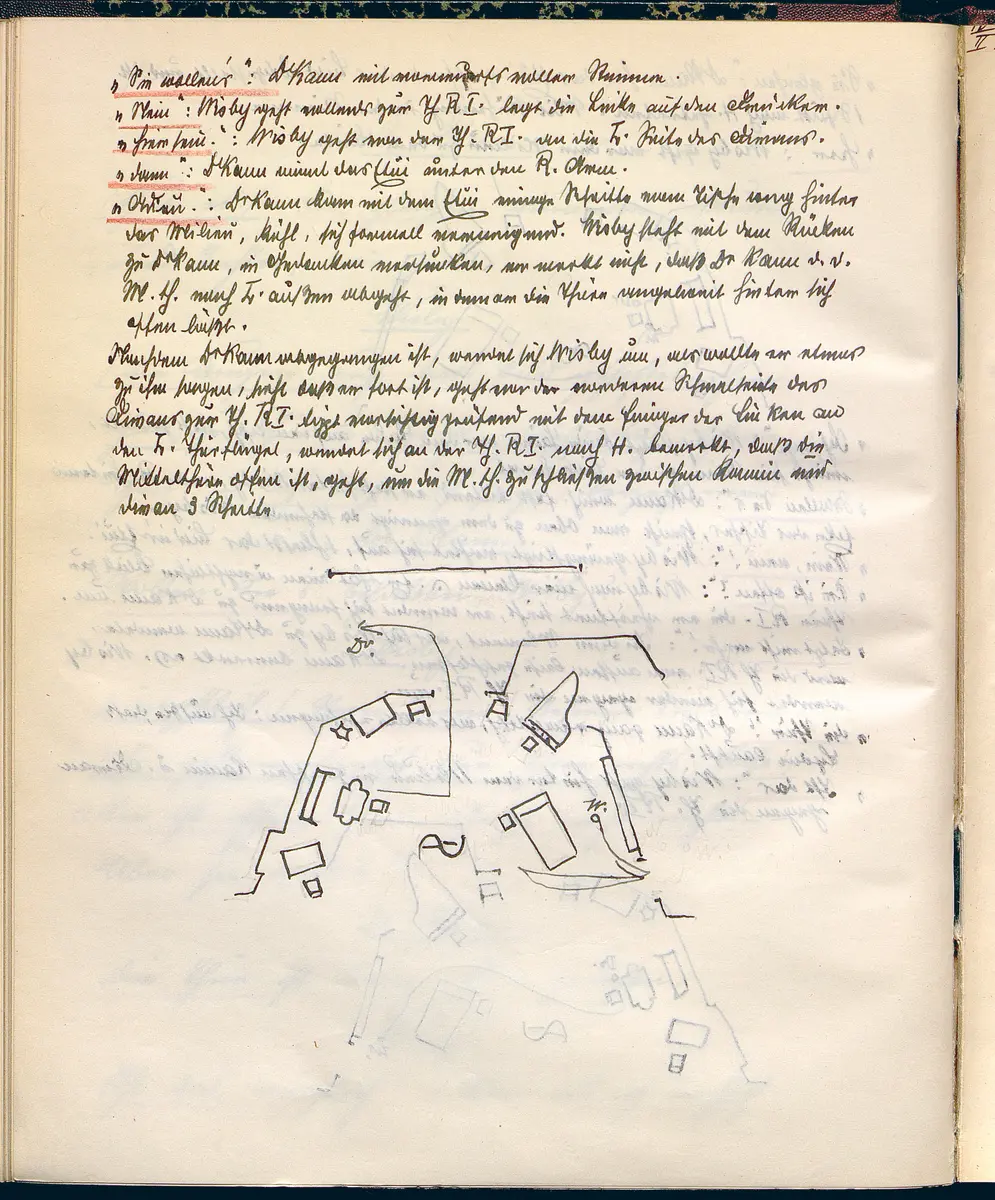 „Sie wollen's“: DrKann mit vorwurfsvoller Stimme.
„Nein“: Wisby geht vollends zur Th. R I. legt die Linke auf den Drücker.
„hier sein.“: Wisby geht von der Th. R I. an die L. Seite des Divans.
„dann“: DrKann nimmt das Etui unter den R. Arm.
„Adieu.“: DrKann kam mit dem Etui einige Schritte vom Tische weg hinter
das Milieu, kühl, sich formell verneigend. Wisby steht mit dem Rücken
zu DrKann, in Gedanken versunken, er merkt nicht, daß Dr Kann d. d.
M. th. nach L. außen abgeht, indem er die Thüre angelweit hinter sich
offen läßt.
Nachdem DrKann abgegangen ist, wendet sich Wisby um, als wollte er etwas
zu ihm sagen, sieht daß er fort ist, geht vor der vorderen Schmalseite des
Divans zur Th. R I. tippt vorsichtig prüfend mit dem Finger der Linken an
den L. Thürflügel, wendet sich an der Th. R I. nach H. bemerkt, daß die
Mittelthüre offen ist, geht, um die M. th. zu schließen zwischen Kamin und
Divan 3 Schritte
Dr.
W.